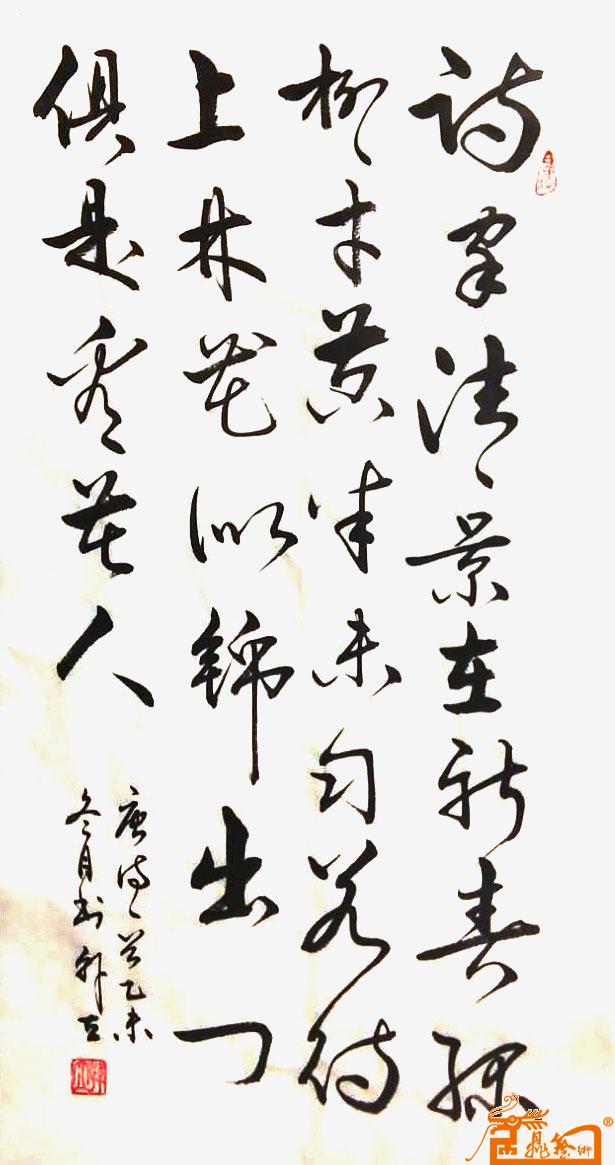 诗家清景在新春绿
柳才黄半未匀若待
上林花似锦出门
俱是看花人
唐诗一首乙未
冬月书